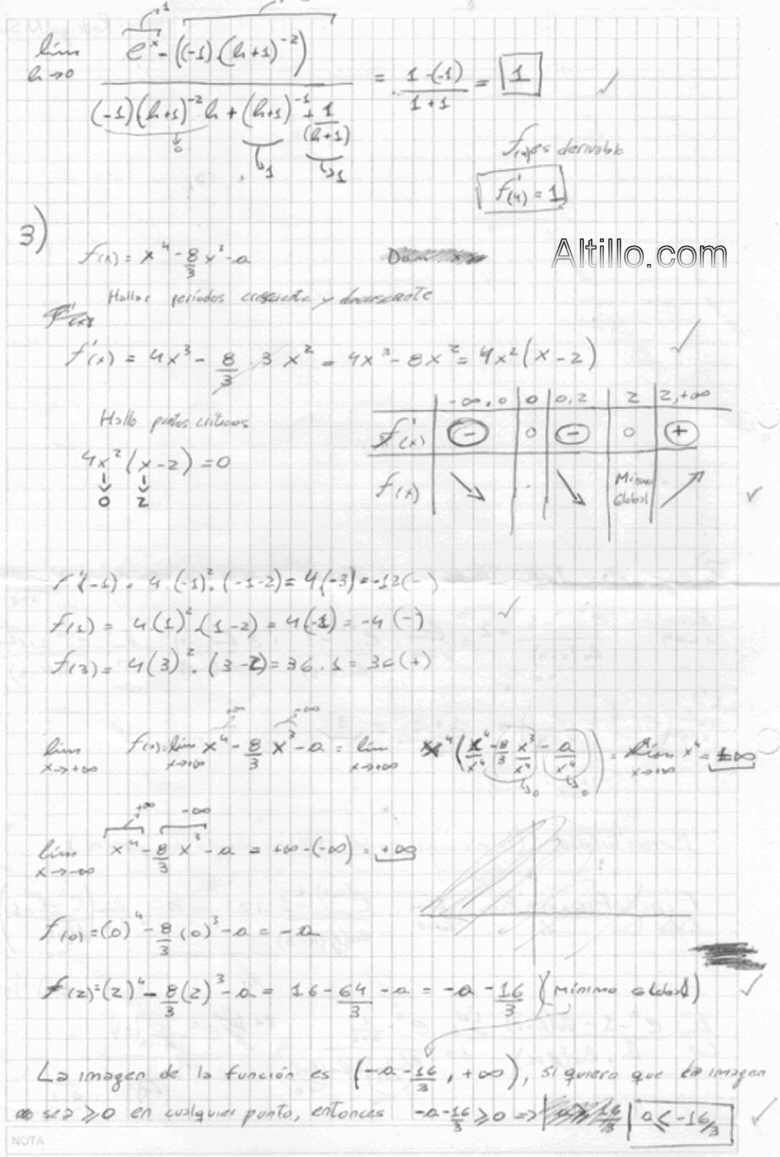 lim h→0 (e^x - ((-1).(h+1)^-2)) / ((-1)(h+1)^-2 h + (h+1)^-1 + 1/(h+1)) = (1-(-1))/(1+1) = 1
→1
↳0 ↳1 ↳1
f(x) es derivable
f'(4) = 1
3)
f(x) = x^4 - 8/3 x^3 - a
Altillo.com
Hallar períodos creciente y decreciente
f'(x) = 4x^3 - 8/3 . 3 x^2 = 4x^3 - 8x^2 = 4x^2 (x-2)
Hallo puntos críticos
4x^2 (x-2) = 0
0 2
-∞,0 | 0 | 0,2 | 2 | 2,+∞
f'(x) | - | 0 | - | 0 | +
f(x) | ↘ | . | ↘ | Mínimo Global | ↗
f'(-1) = 4.(-1)^2.(-1-2) = 4(-3) = -12 (-)
f(1) = 4(1)^2.(1-2) = 4(-1) = -4 (-)
f(3) = 4(3)^2.(3-2) = 36.1 = 36 (+)
+∞ -∞
lim x→+∞ f(x) = lim x→+∞ x^4 - 8/3 x^3 - a = lim x→+∞ x^4 (x^4/x^4 - 8/3 x^3/x^4 - a/x^4) = lim x→+∞ x^4 = +∞
↳0 ↳0
+∞ -∞
lim x→-∞ x^4 - 8/3 x^3 - a = +∞ - (-∞) = +∞
f(0) = (0)^4 - 8/3 (0)^3 - a = -a
f(2) = (2)^4 - 8/3 (2)^3 - a = 16 - 64/3 - a = -a - 16/3 (Mínimo Global)
La imagen de la función es (-a - 16/3, +∞), si quiero que la imagen
sea ≥0 en cualquier punto, entonces -a - 16/3 ≥ 0 ⇒ a ≤ -16/3
NOTA